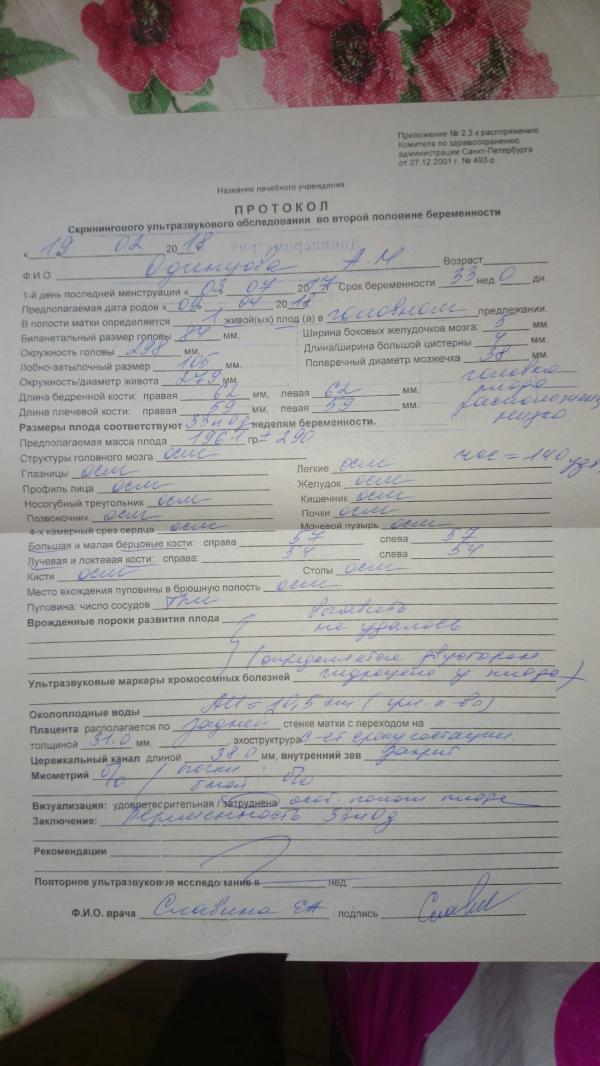 Приложение № 2.3 к распоряжению
Комитета по здравоохранению
администрации Санкт-Петербурга
от 27.12.2001 г. № 493-р.
Название лечебного учреждения
ПРОТОКОЛ
Скринингового ультразвукового обследования во второй половине беременности
« 19 02 2018
Ф.И.О. Одинцова А.М. Возраст
1-й день последней менструации « 03 07 2017 Срок беременности 33 нед. 0 дн.
Предполагаемая дата родов « 04 2018
В полости матки определяется 1 живой(ых) плод (а) в головном предлежании.
Бипариетальный размер головы 84 мм. Ширина боковых желудочков мозга: 5 мм.
Окружность головы 298 мм. Длина/ширина большой цистерны 4 мм.
Лобно-затылочный размер 105 мм. Поперечный диаметр мозжечка 38 мм.
Окружность/диаметр живота 279 мм. головка
Длина бедренной кости: правая 62 мм, левая 62 мм. плода
Длина плечевой кости: правая 59 мм, левая 59 мм. расположена
Размеры плода соответствуют 33н0д неделям беременности. низко
Предполагаемая масса плода 1961 гр ± 290
Структуры головного мозга осм чсс = 140 уд
Глазницы осм Легкие осм
Профиль лица осм Желудок осм
Носогубный треугольник осм Кишечник осм
Позвоночник осм Почки осм
4-х камерный срез сердца осм Мочевой пузырь осм
Большая и малая берцовые кости: справа 57 слева 57
Лучевая и локтевая кости: справа: 54 слева 54
Кисти осм Стопы осм
Место вхождения пуповины в брюшную полость осм
Пуповина: число сосудов три
Врожденные пороки развития плода выявить
не удалось
(определяется двусторон
Ультразвуковые маркеры хромосомных болезней гидроцеле у плода)
Околоплодные воды = 10,5 cm (
Плацента располагается по задней стенке матки с переходом на
толщиной 31.0 мм, эхоструктура с-ет сроку гестации.
Цервикальный канал длиной 38.0 мм, внутренний зев закрыт
Миометрий б/о почки
б/о
Визуализация: удовлетворительная / затруднена особ. полож плода
Заключение: Беременность 33н0д
Рекомендации
Повторное ультразвуковое исследование в нед.
Ф.И.О. врача Славина ЕА подпись